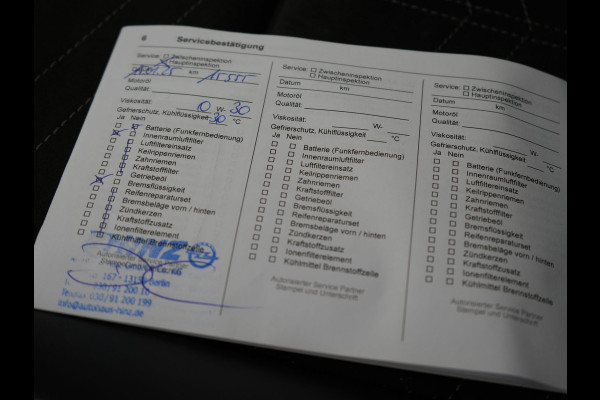 6 Servicebestätigung
Service: Zwischeninspektion
Hauptinspektion
km 15 555
Motoröl
Qualität:
Viskosität: 0 W- 30
Gefrierschutz, Kühlflüssigkeit -30 °C
Ja Nein
Batterie (Funkfernbedienung)
Innenraumluftfilter
Luftfiltereinsatz
Keilrippenriemen
Zahnriemen
Kraftstofffilter
Getriebeöl
Bremsflüssigkeit
Reifenreparaturset
Bremsbeläge vorn / hinten
Zündkerzen
Kraftstoffzusatz
Ionenfilterelement
Kühlmittel Brennstoffzelle
Autorisierter Service Partner
GmbH & Co. KG
Berlin
030/91 200 199
info@autohaus-hinz.de
Service: Zwischeninspektion
Hauptinspektion
Datum km
Motoröl
Qualität:
Viskosität: W-
Gefrierschutz, Kühlflüssigkeit °C
Ja Nein
Batterie (Funkfernbedienung)
Innenraumluftfilter
Luftfiltereinsatz
Keilrippenriemen
Zahnriemen
Kraftstofffilter
Getriebeöl
Bremsflüssigkeit
Reifenreparaturset
Bremsbeläge vorn / hinten
Zündkerzen
Kraftstoffzusatz
Ionenfilterelement
Kühlmittel Brennstoffzelle
Autorisierter Service Partner
Stempel und Unterschrift
Service: Zwischeninspektion
Hauptinspektion
Datum km
Motoröl
Qualität:
Viskosität: W-
Gefrierschutz, Kühlflüssigkeit °C
Ja Nein
Batterie (Funkfernbedienung)
Innenraumluftfilter
Luftfiltereinsatz
Keilrippenriemen
Zahnriemen
Kraftstofffilter
Getriebeöl
Bremsflüssigkeit
Reifenreparaturset
Bremsbeläge vorn / hinten
Zündkerzen
Kraftstoffzusatz
Ionenfilterelement
Kühlmittel Brennstoffzelle
Autorisierter Service Partner
Stempel und Unterschrift